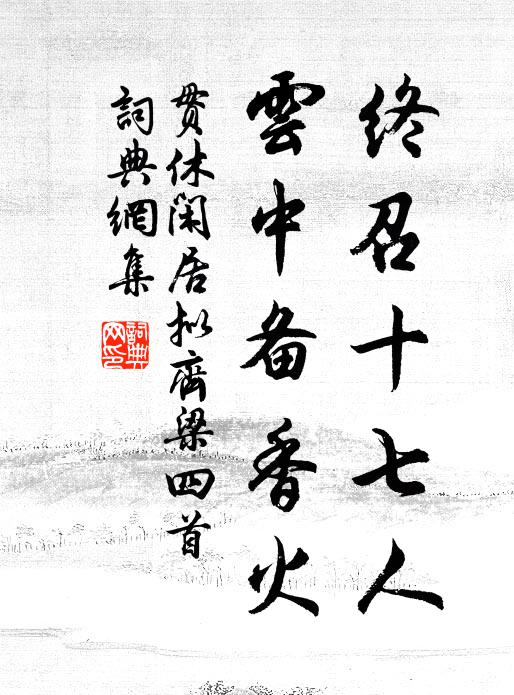 終召十七人
雲中备香火
贯休闲居拟齊梁四首
詞典網集
詞典
网印